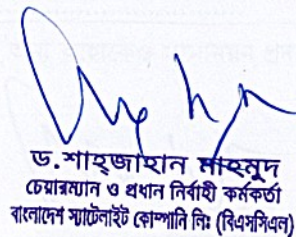 ড. শাহ্জাহান মাহমুদ
চেয়ারম্যান ও প্রধান নির্বাহী কর্মকর্তা
বাংলাদেশ স্যাটেলাইট কোম্পানি লিঃ (বিএসসিএল)